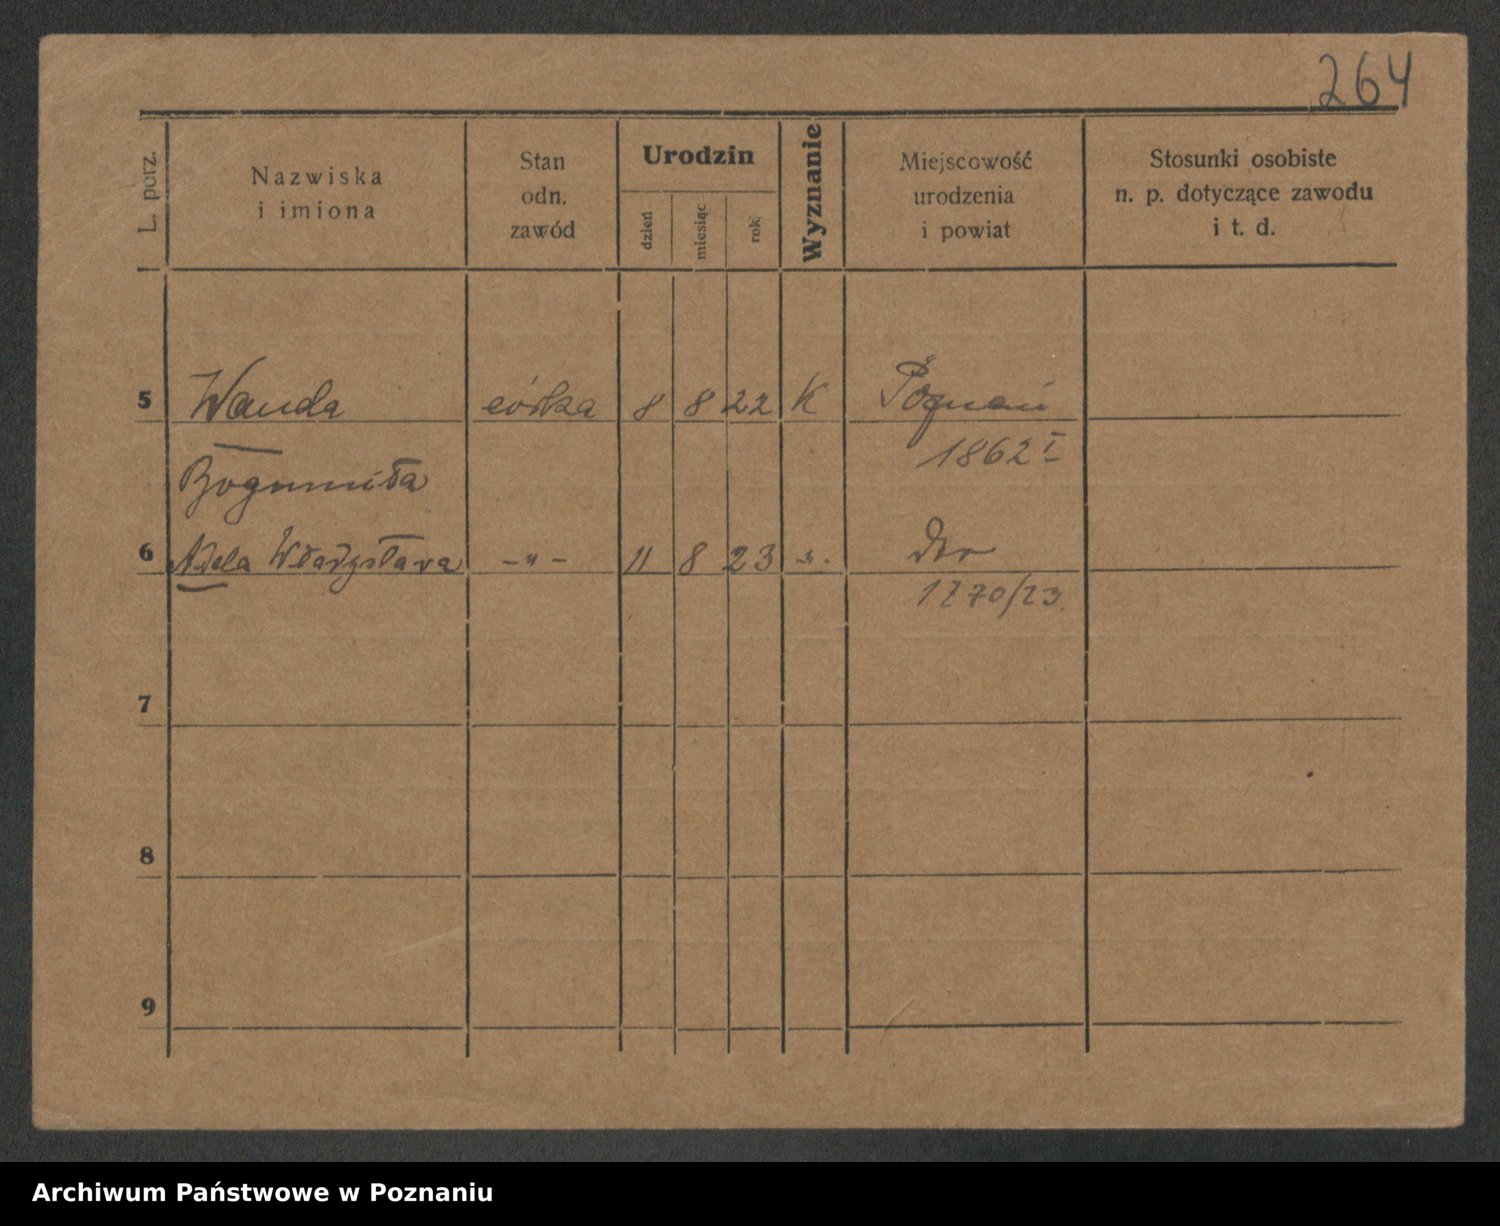 264
L. porz.
Nazwiska
i imiona
Stan
odn.
zawód
Urodzin
dzień
miesiąc
rok
Wyznanie
Miejscowość
urodzenia
i powiat
Stosunki osobiste
n. p. dotyczące zawodu
i t. d.
5 Wanda córka 8 8 22 K Poznań
1862 I
Bogumiła
6 Adela Władysława -"- 11 8 23 -"- dto
1270/23.
7
8
9
Archiwum Państwowe w Poznaniu